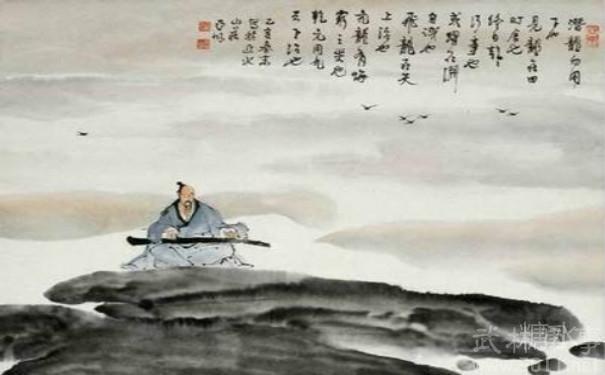 潜龍勿用
下也
見龍在田
时舍也
终日乾乾
行事也
或躍在渊
自试也
飛龍在天
上治也
亢龍有悔
窮之災也
乾元用九
天下治也
乙亥春末
山莊
武林